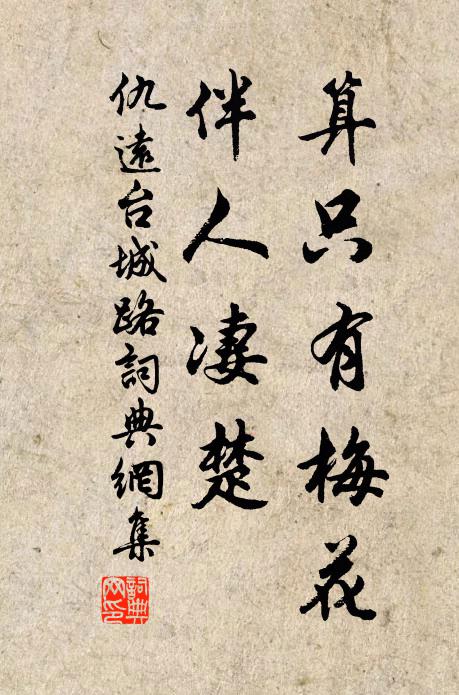 算只有梅花
伴人凄楚
仇遠台城路詞典網集
詞典网印